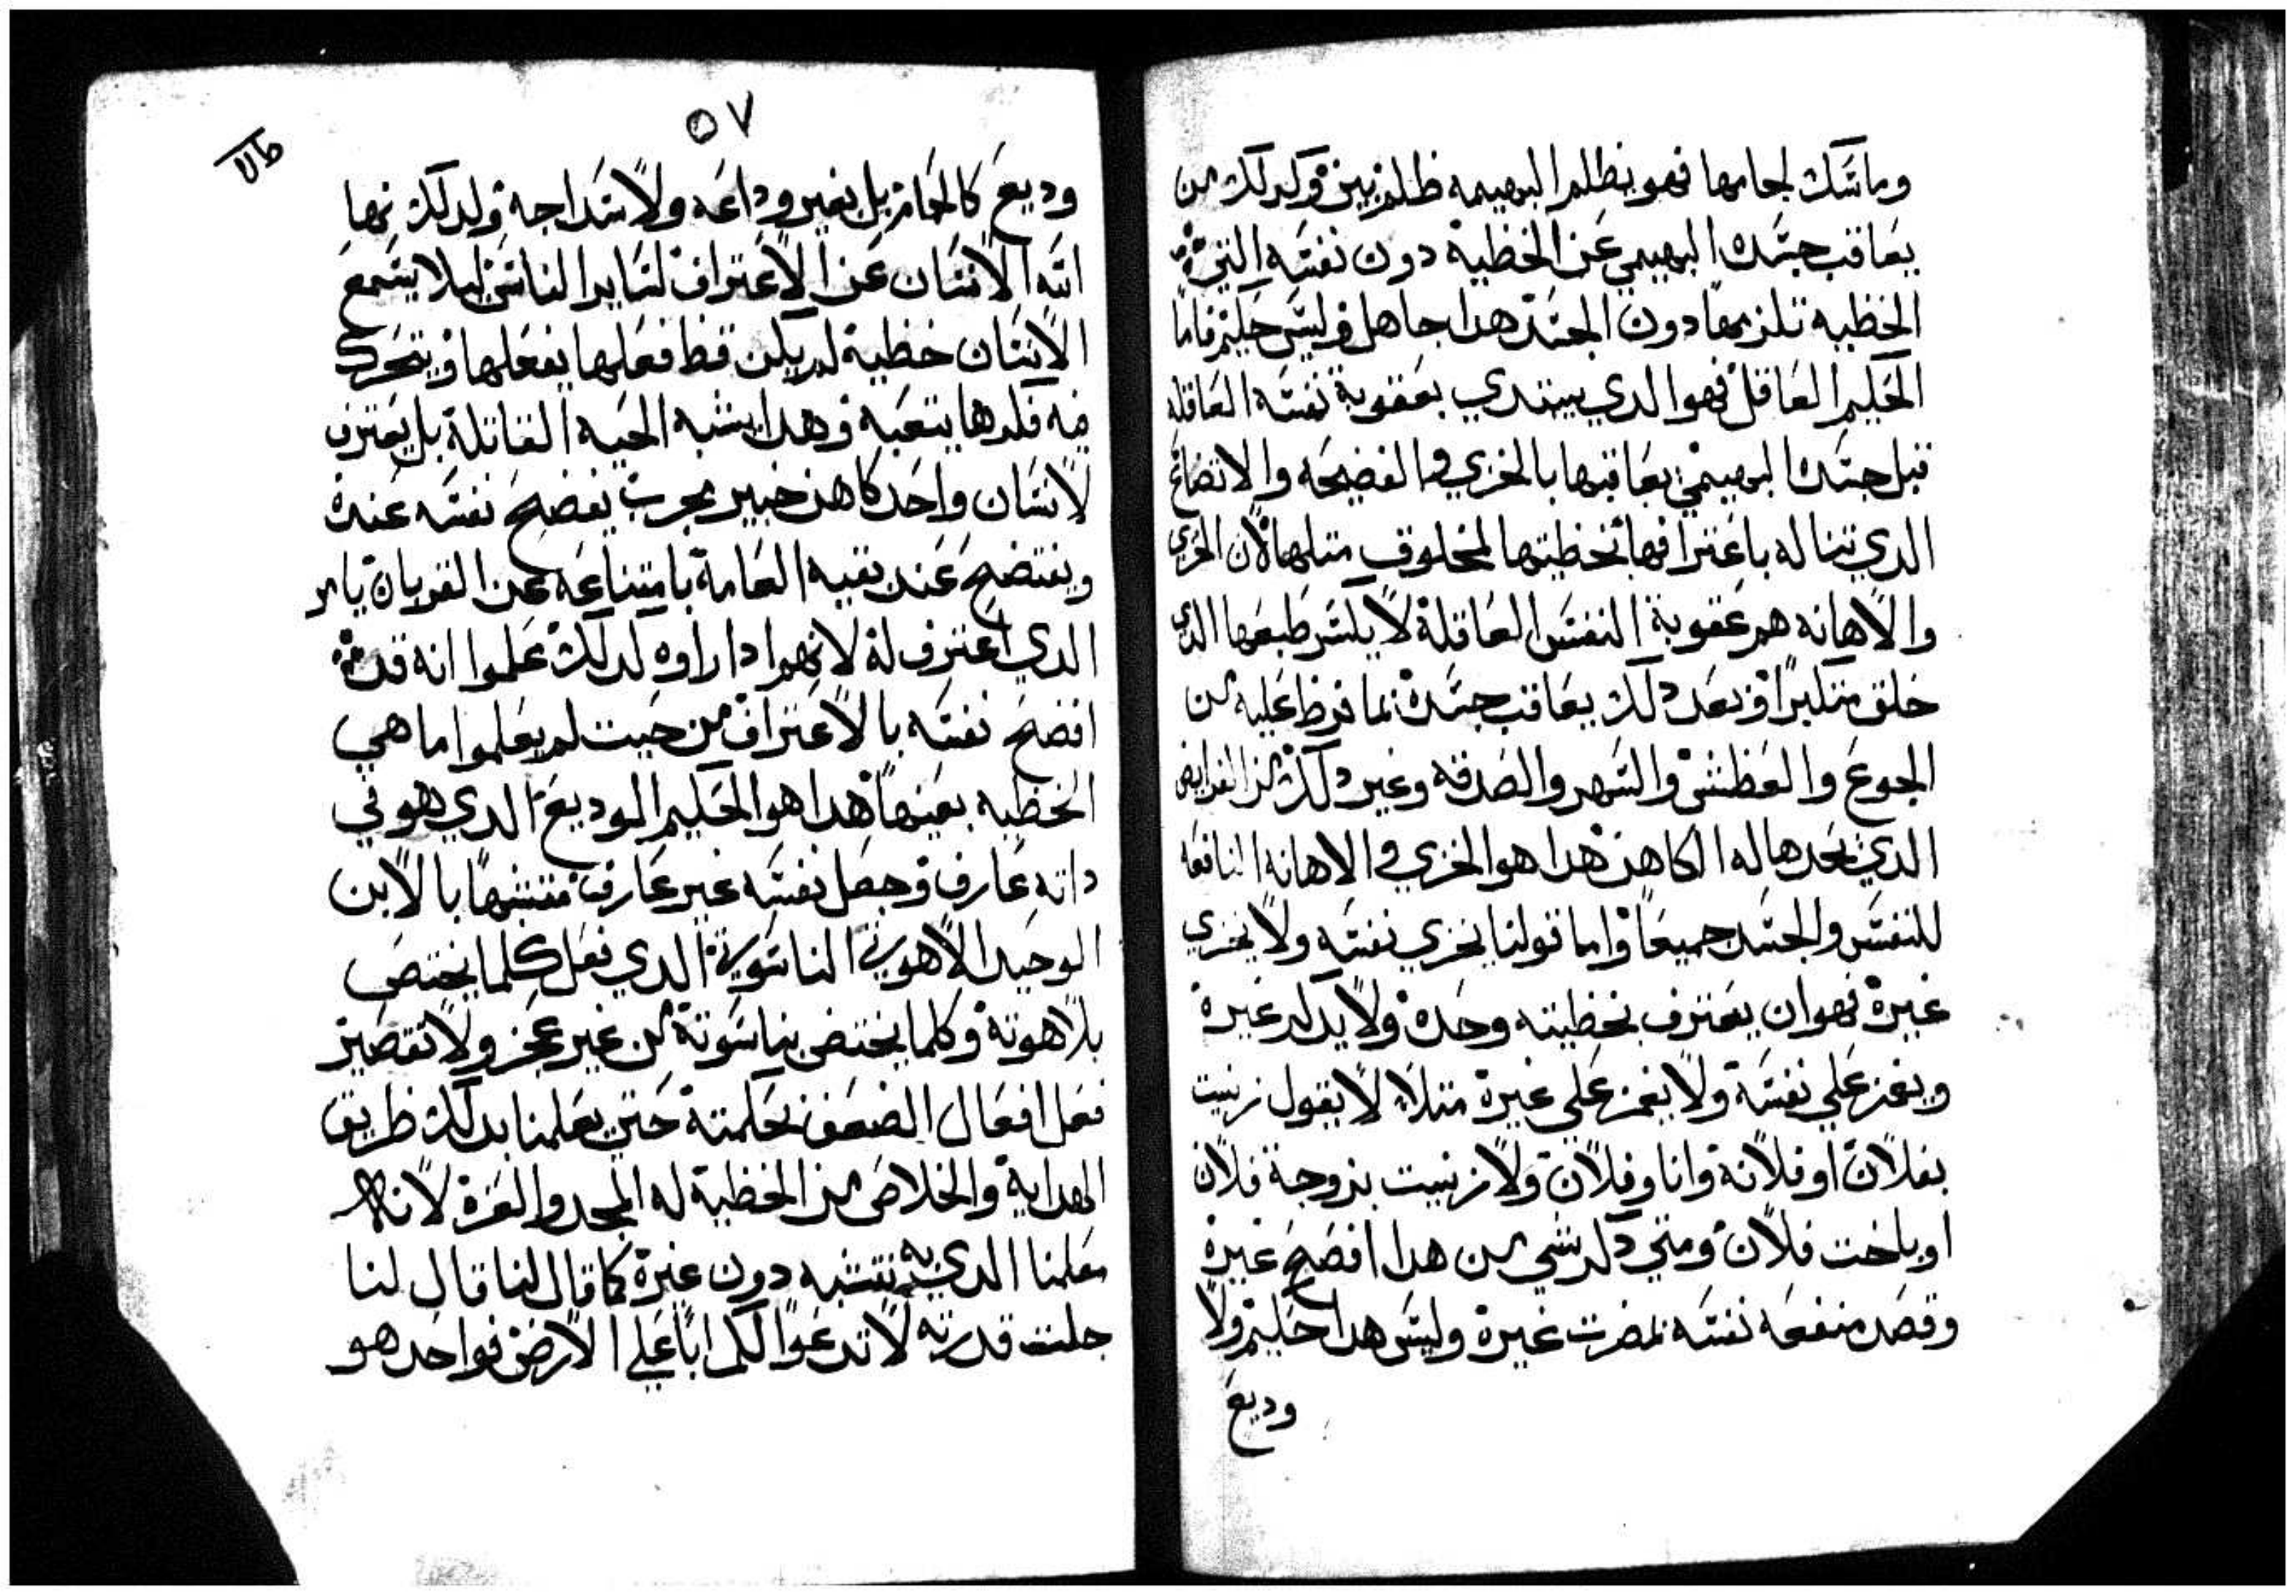 وماسك لجامها فهو يظلم البهيمه ظلم بين وكدلك من
يعاقب جسده البهيمي عن الخطية دون نفسه التي
الخطيه تلزمها دون الجسد هدا جاهل وليس حكيم فاما
الحكيم العاقل فهو الدي يبتدي بعقوبة نفسه العاقله
قبل جسده البهيمي يعاقبها بالخزي والفضيحه والاتضاع
الدي تناله باعترافها بخطيتها لمخلوق متلها لان الخزي
والاهانه هم عقوبة النفس العاقلة لا يكسر طبعها الدي
خلق متكبرا وبعد دلك يعاقب جسدة بما فرط عليه من
الجوع والعطش والسهر والصدقه وغير دلك من الفرايض
الدي يحدها له الكاهن هدا هو الخزي والاهانه النافعه
للنفس والجسد جميعا واما قولنا يخزي نفسه ولا يخزي
غيرة فهو ان يعترف بخطيته وحدة ولا يدكر غيرة
ويغمز علي نفسة ولا يغمز علي غيرة متلا لا يقول زنيت
بفلان او فلانة وانا وفلان ولا زنيت بزوجة فلان
او باخت فلان ومتي دكر شي من هدا افضح غيرة
وقصد منفعه نفسه بمضرت غيرة وليس هدا حكيم ولا
وديع
٥٧
وديع كالحمام بل بغير وداعه ولا سداجه ولدلك نها
الله الانسان عن الاعتراف لساير الناس ليلا يسمع
الانسان خطية لم يكن قط فعلها يفعلها ويتحرك
فيه فكرها بتعبه وهدا يشبه الحيه القاتلة بل يعترف
لانسان واحد كاهن خبير مجرب يفضح نفسه عندة
ويفتضح عند بقيه العامة بامتناعه عن القربان بامر
الدي اعترف له لانهم ادا راوه كدلك علموا انه قد
افضح نفسه بالاعتراف من حيت لم يعلموا ما هي
الخطيه بعينها هدا هو الحكيم الوديع الدي هو في
داته عارف وجعل نفسه غير عارف متشبها بالابن
الوحيد الاهوتي الناسوتي الدي فعل كلما يختص
بلاهوتة وكلما يختص بناسوتة من غير عجز ولا تقصير
فعل افعال الضعف بحكمتة حتي يعلمنا بدلك طريق
الهداية والخلاص من الخطية له المجد والعزة لانه
معلمنا الدي به نتشبه دون غيرة كما قال لنا قال لنا
جلت قدرته لا تدعوا لكم ابا علي الارض فواحد هو